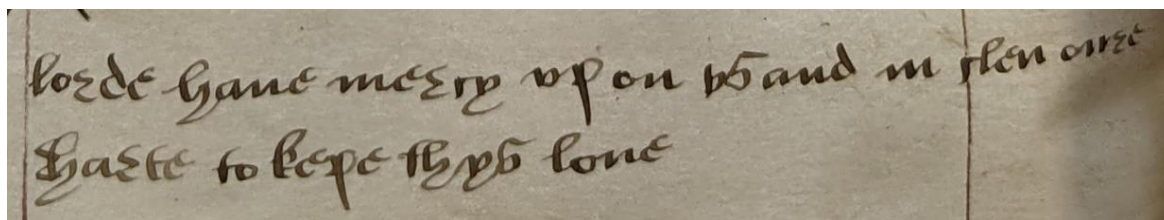 lorde haue mercy vp on vs and in clen oure
harte to kepe thys loue